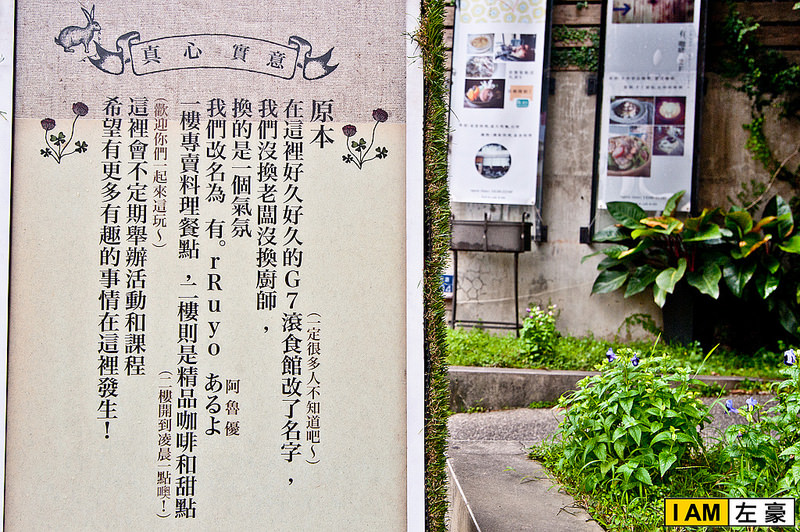 真心實意
原本
在這裡好久好久的G7滾食館改了名字，
（一定很多人不知道吧～）
我們沒換老闆沒換廚師，
換的是一個氣氛
我們改名為 有。rRuyo あるよ
阿魯優
一樓專賣料理餐點，二樓則是精品咖啡和甜點
（二樓開到凌晨一點噢！）
（歡迎你們一起來這玩～）
這裡會不定期舉辦活動和課程
希望有更多有趣的事情在這裡發生！
I AM 左豪